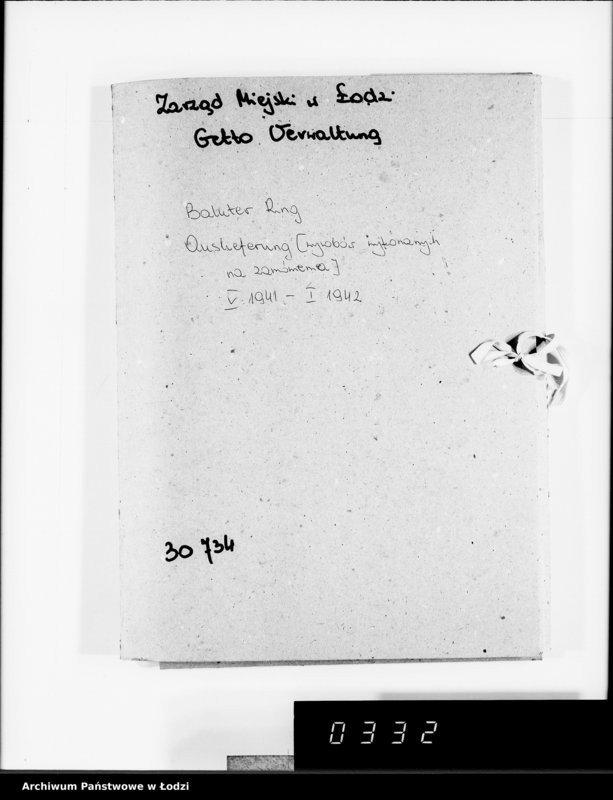 Zarząd Miejski w Łodzi
Getto Verwaltung
Baluter Ring
Auslieferung [wyrobów wykonanych
na zamówienie]
V 1941 – I 1942
30 734
0332
Archiwum Państwowe w Łodzi